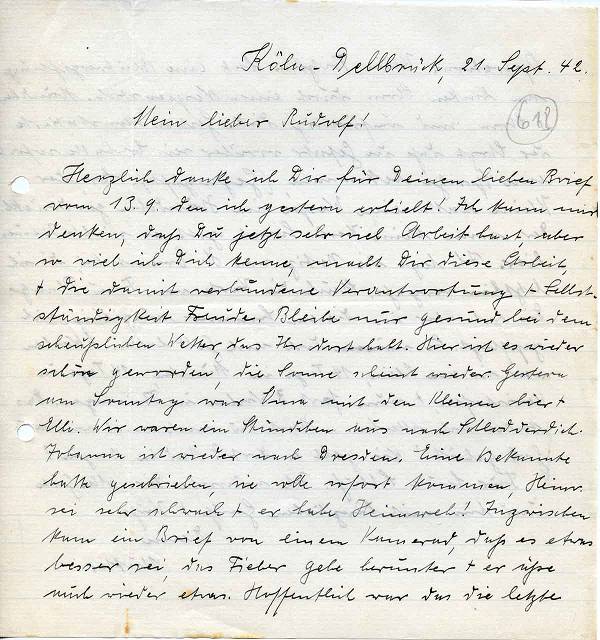 Köln-Dellbrück, 21. Sept. 42.
Mein lieber Rudolf!
618
Herzlich danke ich Dir für Deinen lieben Brief
vom 13.9. den ich gestern erhielt! Ich kann mir
denken, daß Du jetzt sehr viel Arbeit hast, aber
so viel ich Dich kenne, macht Dir diese Arbeit,
+ die damit verbundene Verantwortung + Selbst-
ständigkeit Freude. Bleibe nur gesund bei dem
scheußlichen Wetter, das Ihr dort habt. Hier ist es wieder
schön geworden, die Sonne scheint wieder. Gestern
am Sonntag war mit den Kleinen hier +
Elli. Wir waren ein Stündchen aus nach
Johanna ist wieder nach Dresden. Eine Bekannte
hatte geschrieben, sie solle sofort kommen, Heinr.
sei sehr schwach + er habe Heimweh! Inzwischen
kam ein Brief von einem Kamerad, daß es etwas
besser sei, das Fieber gehe herunter + er äße
auch wieder etwas. Hoffentlich war das die letzte